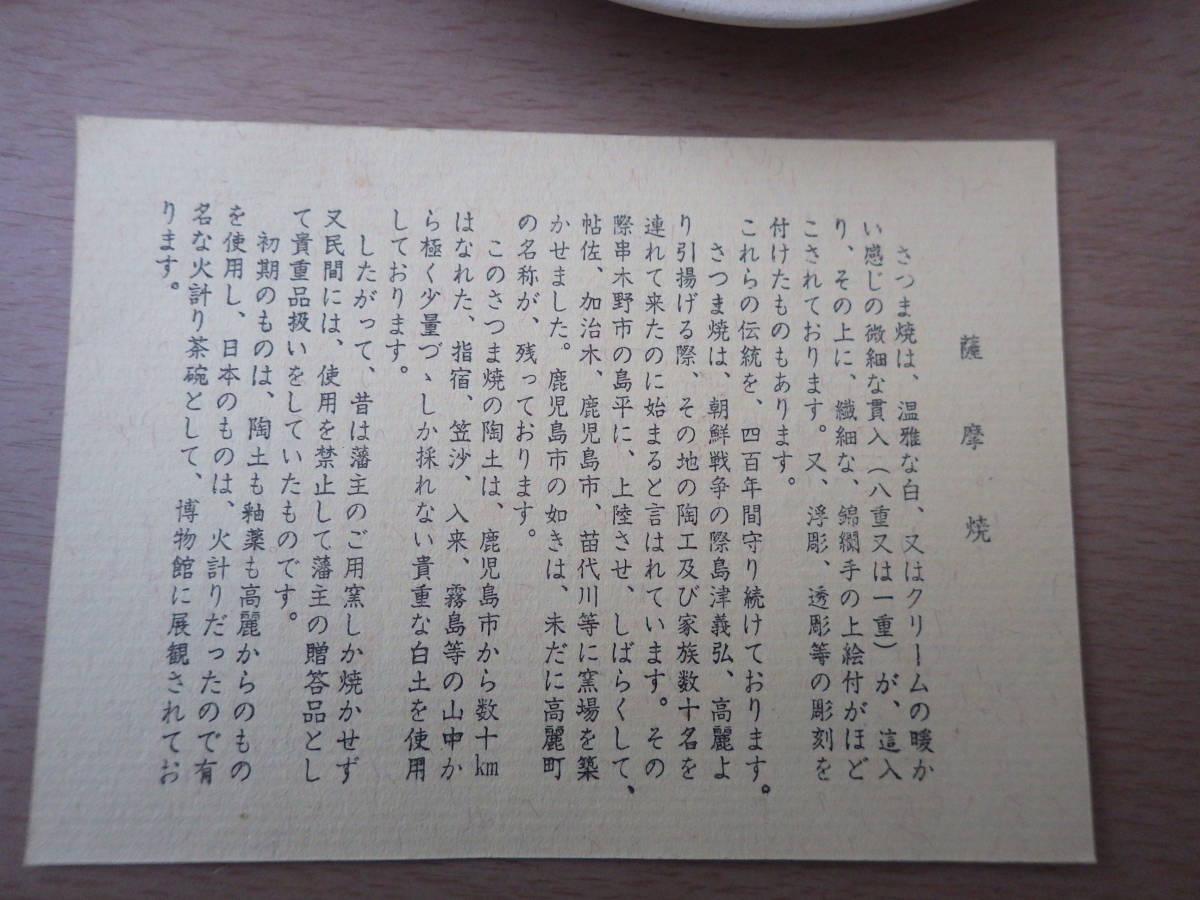 薩摩焼
さつま焼は、温雅な白、又はクリームの暖か
い感じの微細な貫入（八重又は一重）が、這入
り、その上に、繊細な、錦襴手の上絵付がほど
こされております。又、浮彫、透彫等の彫刻を
付けたものもあります。
これらの伝統を、四百年間守り続けております。
さつま焼は、朝鮮戦争の際島津義弘、高麗よ
り引揚げる際、その地の陶工及び家族数十名を
連れて来たのに始まると言はれています。その
際串木野市の島平に、上陸させ、しばらくして、
帖佐、加治木、鹿児島市、苗代川等に窯場を築
かせました。鹿児島市の如きは、未だに高麗町
の名称が、残っております。
このさつま焼の陶土は、鹿児島市から数十km
はなれた、指宿、笠沙、入来、霧島等の山中か
ら極く少量づゝしか採れない貴重な白土を使用
しております。
したがって、昔は藩主のご用窯しか焼かせず
又民間には、使用を禁止して藩主の贈答品とし
て貴重品扱いをしていたものです。
初期のものは、陶土も釉薬も高麗からのもの
を使用し、日本のものは、火計りだったので有
名な火計り茶碗として、博物館に展観されてお
ります。